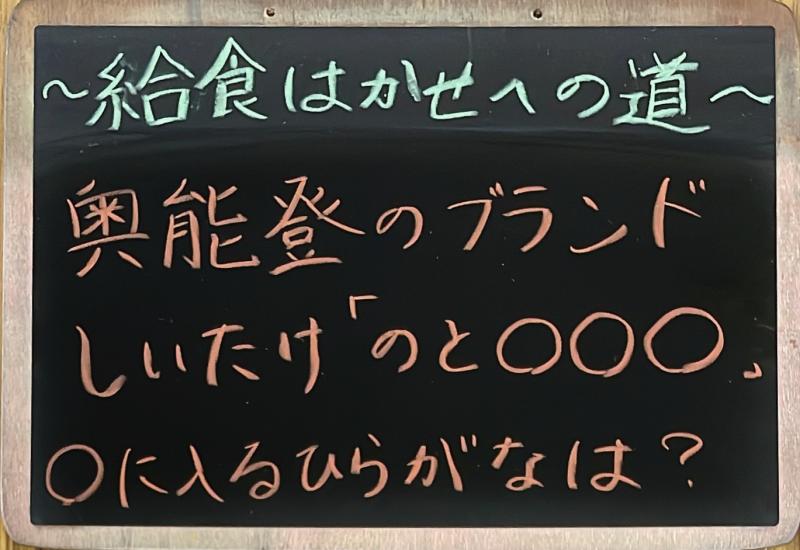 ～給食はかせへの道～
奥能登のブランド
しいたけ「のと〇〇〇」
〇に入るひらがなは？